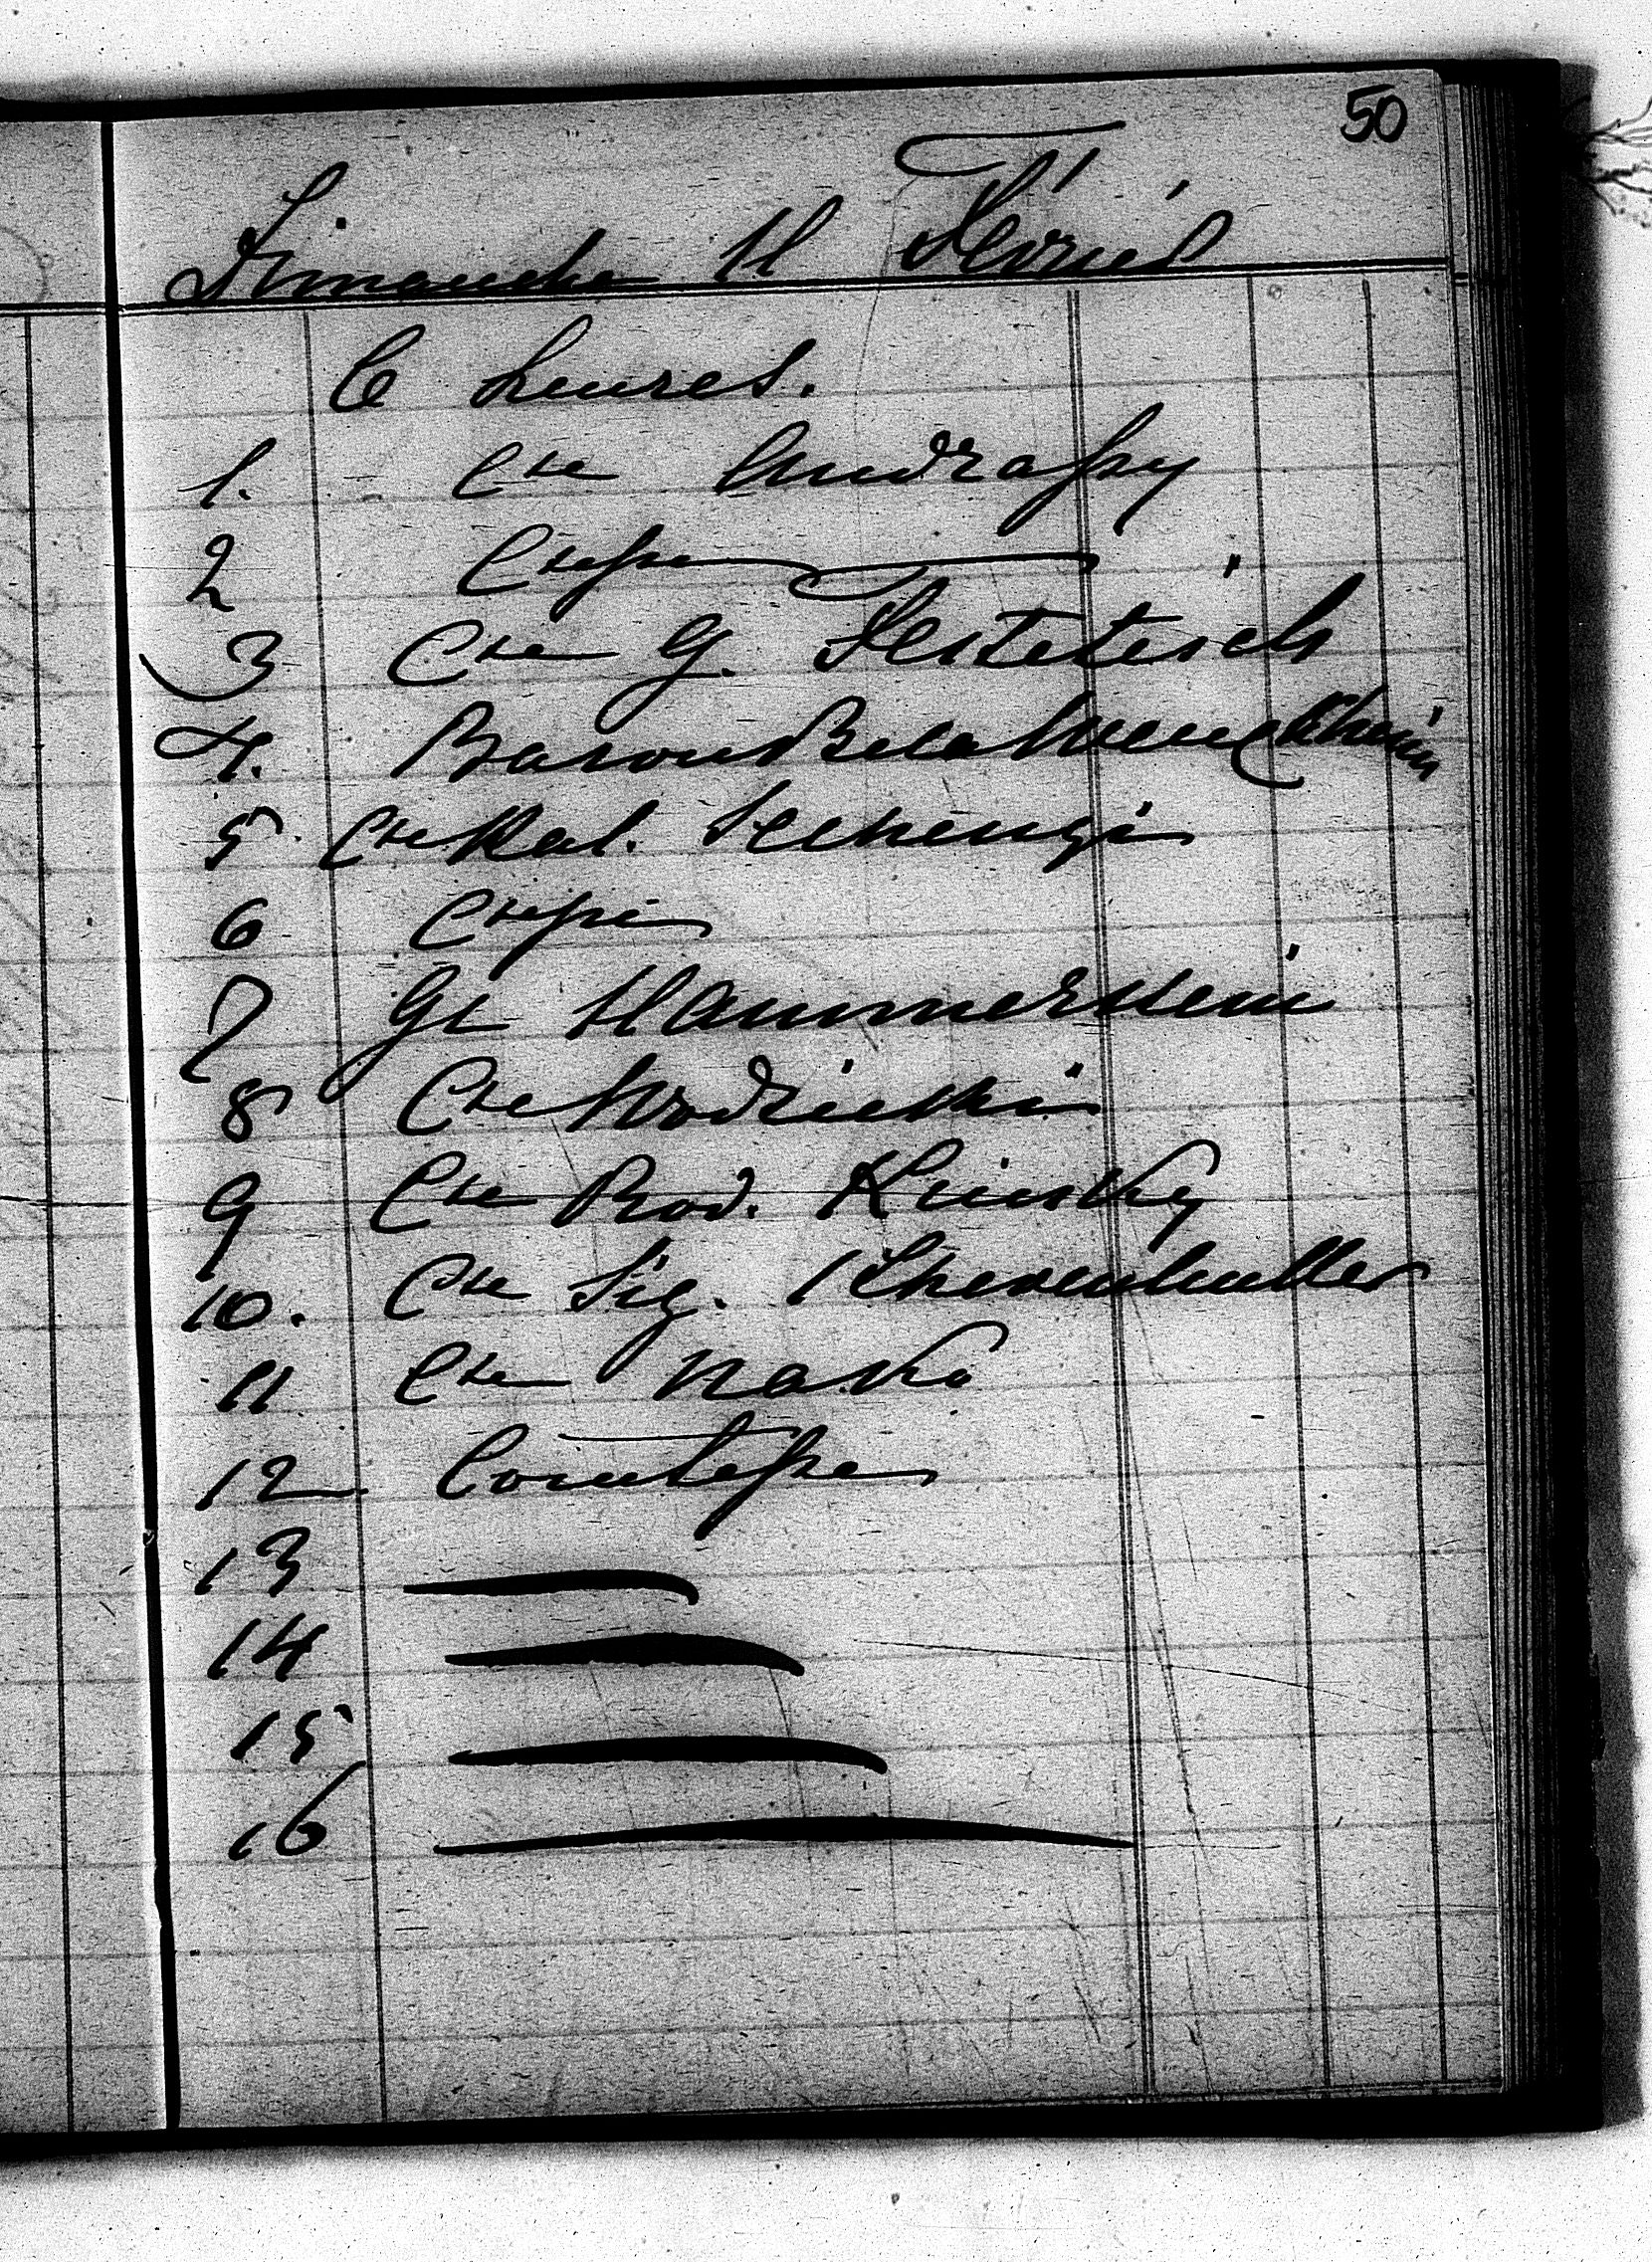 50
Dimanche 11 Février
6 heures.
1. Cte Andrassy
2 Ctesse
3 Cte G. Festetisch
4. Baron Bela Wenckheim
5 Cte Kal. Sechengi
6 Ctesse
7 Gl Hammerstein
8 Cte Wodzicki
9 Cte Rod. Kinsky
10. Cte Sig. Khevenhuller
11 Cte Nako
12 Comtesse
13
14
15
16